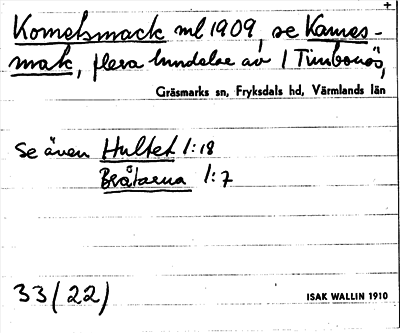 +
Kometsmack ml 1909, se Kames-
mak, flera hundelar av 1 Timbonäs,
Gräsmarks sn, Fryksdals hd, Värmlands län
se även Hultet 1:18
Bråtarna 1:7
33 (22)
ISAK WALLIN 1910